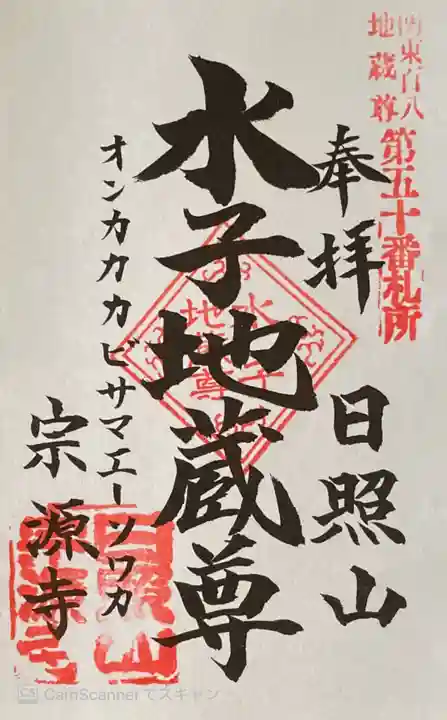 関東百八
地蔵尊
第五十番札所
奉拝
日照山
水子地蔵尊
水子
地蔵
尊
オンカカカビサマエーソワカ
宗源寺
CS CamScanner でスキャン